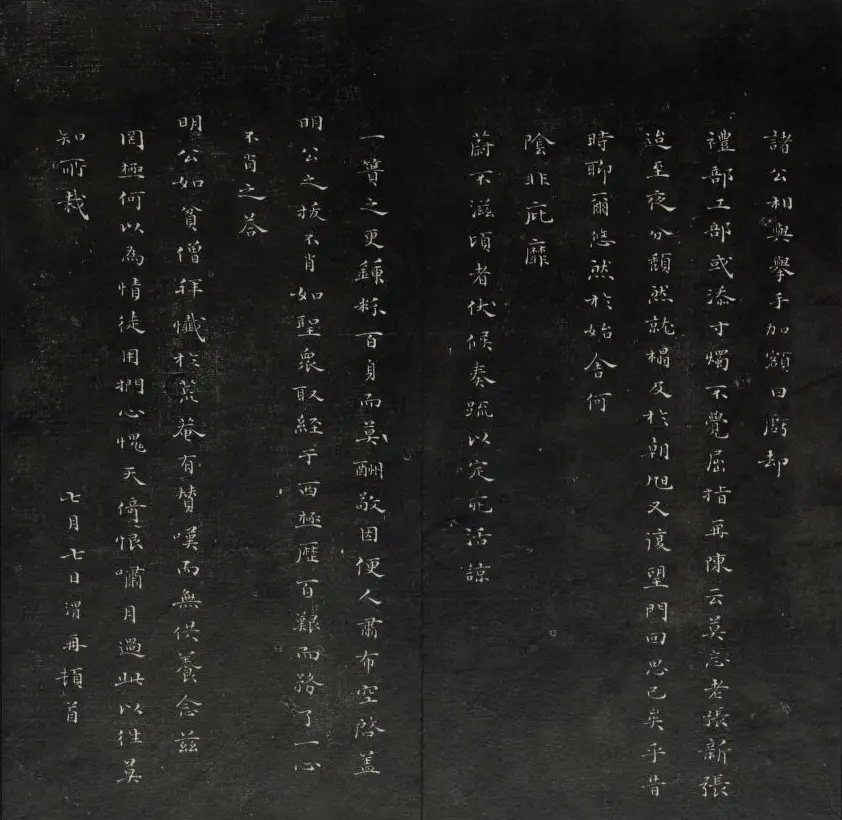 諸公相與舉手加額曰虧却
禮部工部或添寸燭不覺屈指再陳云莫忘老張新張
迨至夜分頹然就榻及於朝旭又復望門回思已矣乎昔
時聊爾悠然於始舍何
陰非庇靡
蔚不滋頃者伏候奏疏以定死活諒
一簣之更鍾粽百身而莫酬敬因便人肅布空啓蓋
明公之援不肖如聖衆取經于西極歷百艱而務了一心
不肖之荅
明公如貧僧拜懺於荒菴有贊嘆而無供養念茲
罔極何以為情徒用捫心愧天倚恨嘯月過此以往莫
知所裁
七月七日渭再頓首